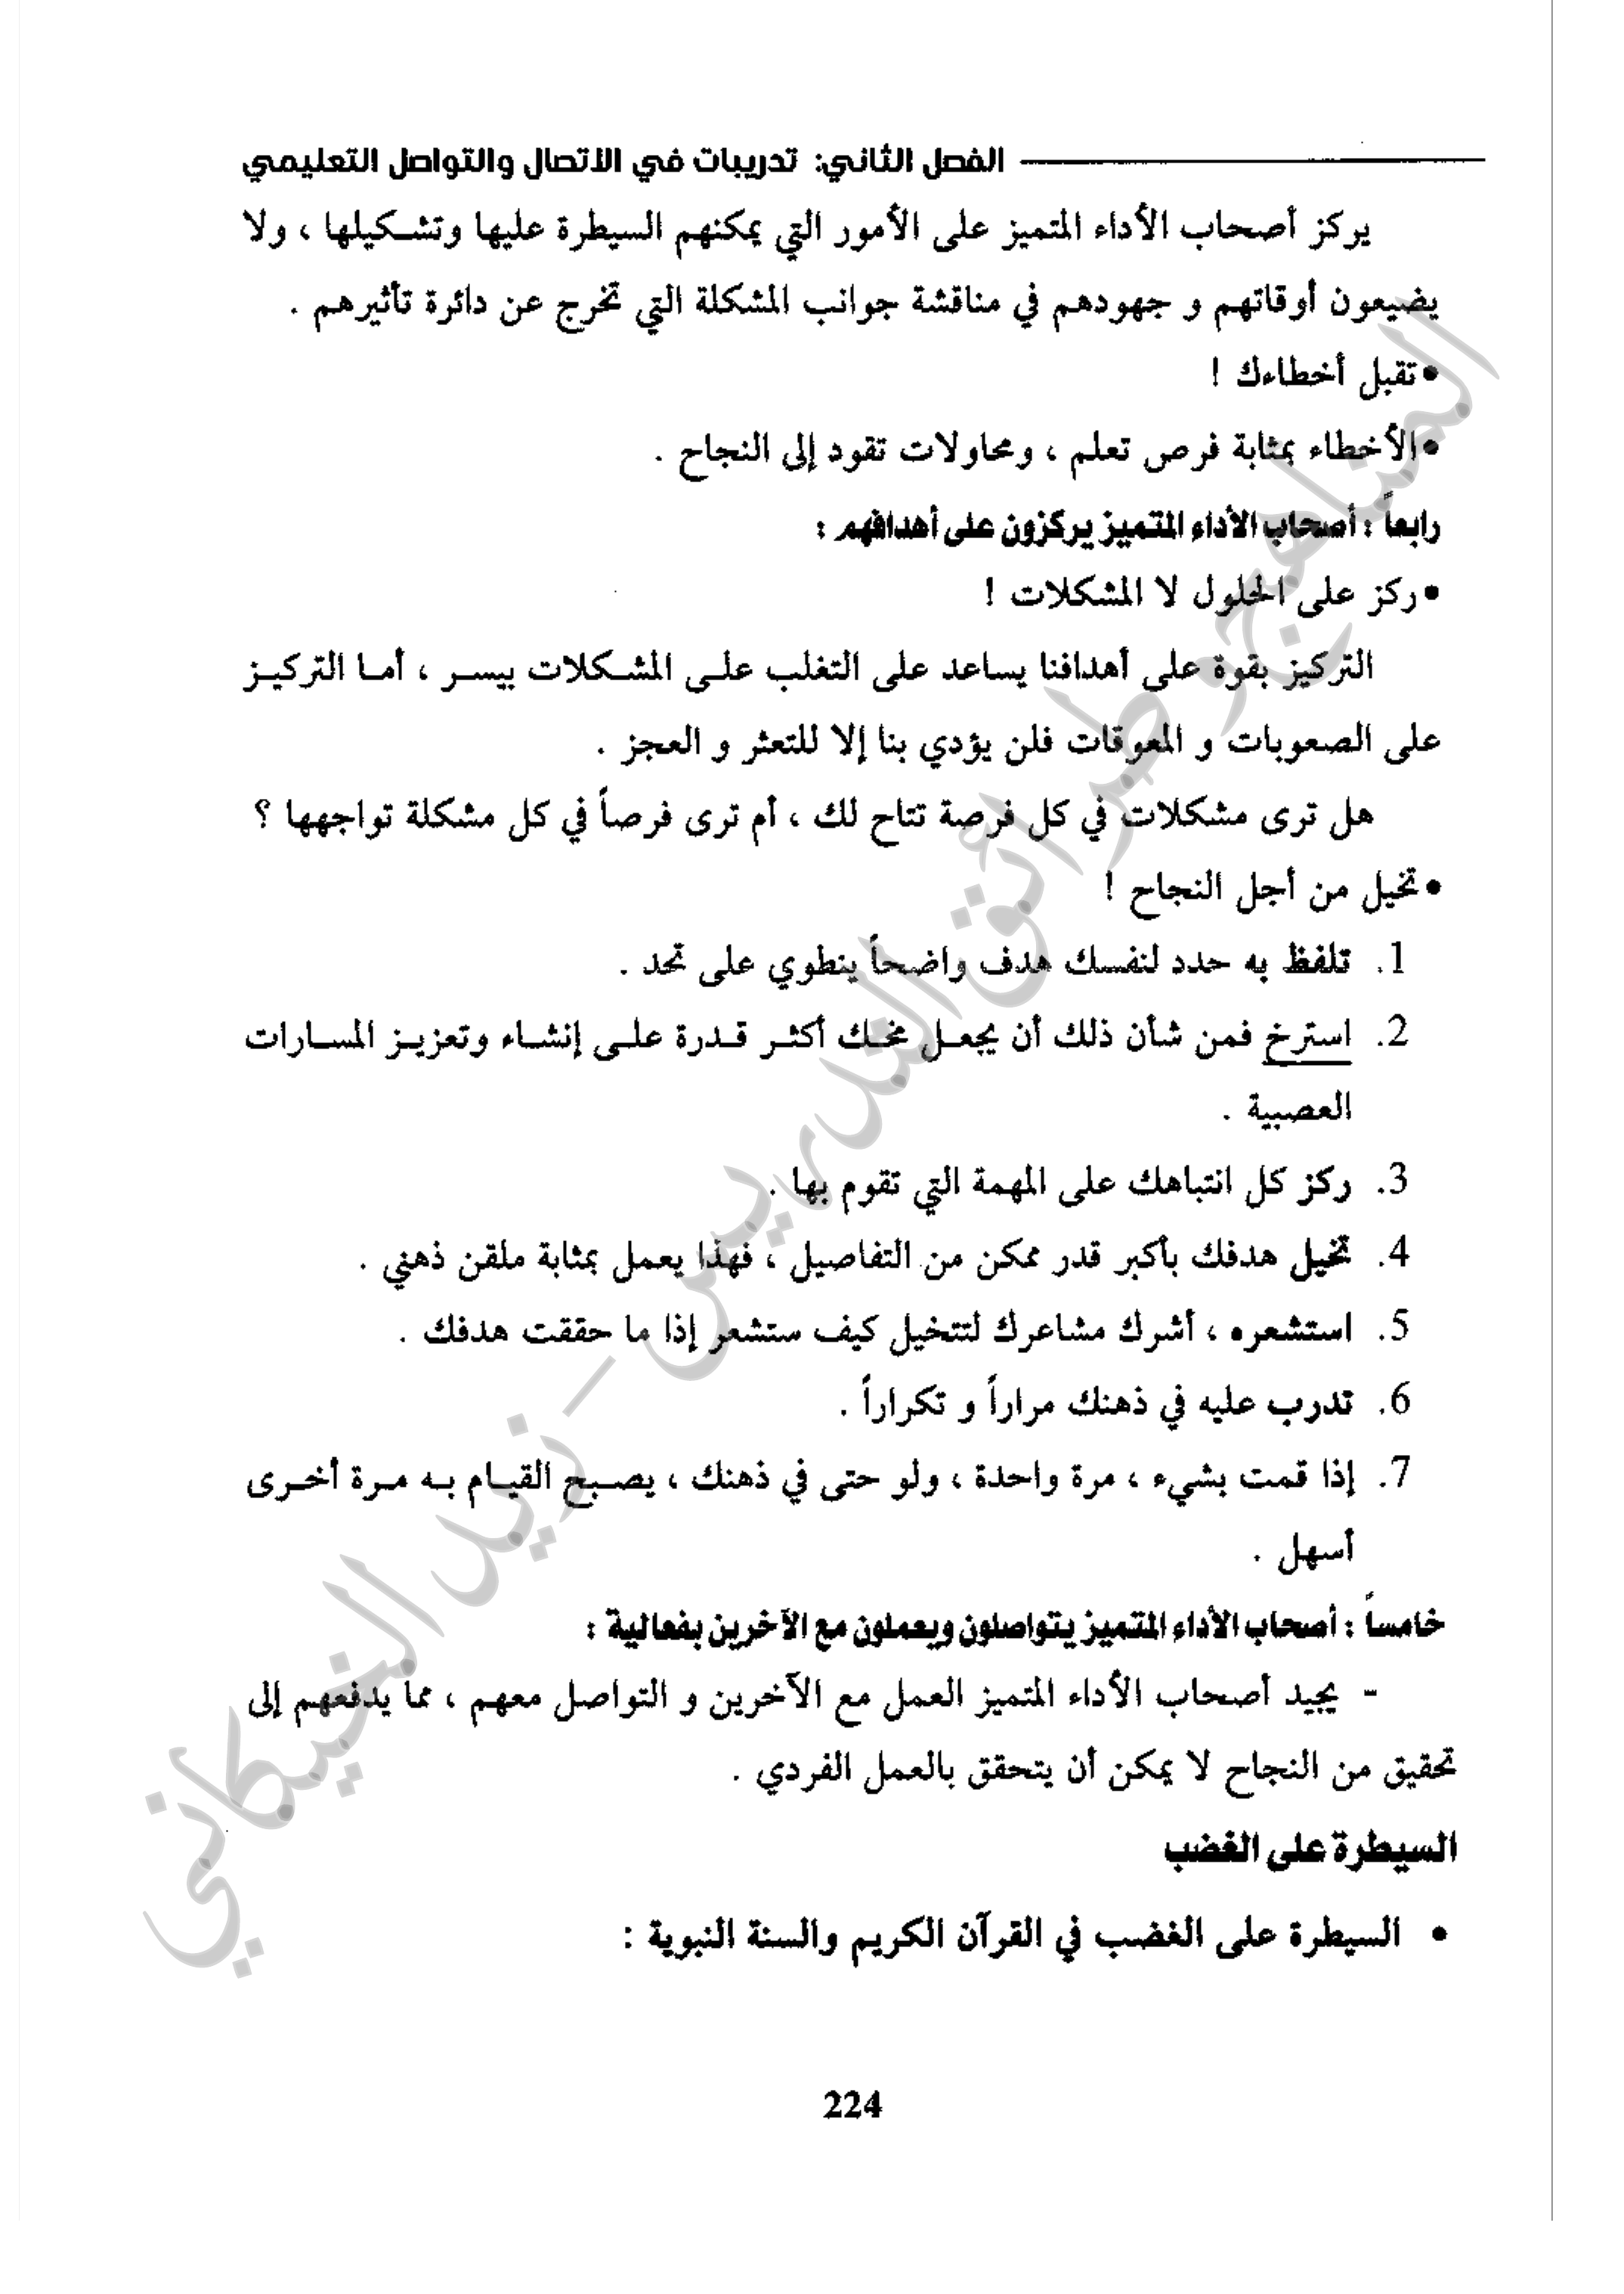 الفصل الثاني: تدريبات في الاتصال والتواصل التعليمي
يركز أصحاب الأداء المتميز على الأمور التي يمكنهم السيطرة عليها وتشكيلها ، ولا
يضيعون أوقاتهم و جهودهم في مناقشة جوانب المشكلة التي تخرج عن دائرة تأثيرهم .
•تقبل أخطاءك !
•الأخطاء بمثابة فرص تعلم ، ومحاولات تقود إلى النجاح .
رابعاً : أصحاب الأداء المتميز يركزون على أهدافهم :
•ركز على الحلول لا المشكلات !
التركيز بقوة على أهدافنا يساعد على التغلب على المشكلات بيسر ، أما التركيز
على الصعوبات و المعوقات فلن يؤدي بنا إلا للتعثر و العجز .
هل ترى مشكلات في كل فرصة تتاح لك ، أم ترى فرصاً في كل مشكلة تواجهها ؟
•تخيل من أجل النجاح !
1. تلفظ به حدد لنفسك هدف واضحاً ينطوي على تحد .
2. استرخ فمن شأن ذلك أن يجعل مخك أكثر قدرة على إنشاء وتعزيز المسارات
العصبية .
3. ركز كل انتباهك على المهمة التي تقوم بها .
4. تخيل هدفك بأكبر قدر ممكن من التفاصيل ، فهذا يعمل بمثابة ملقن ذهني .
5. استشعره ، أشرك مشاعرك لتتخيل كيف ستشعر إذا ما حققت هدفك .
6. تدرب عليه في ذهنك مراراً و تكراراً .
7. إذا قمت بشيء ، مرة واحدة ، ولو حتى في ذهنك ، يصبح القيام به مرة أخرى
أسهل .
خامساً : أصحاب الأداء المتميز يتواصلون ويعملون مع الآخرين بفعالية :
- يجيد أصحاب الأداء المتميز العمل مع الآخرين و التواصل معهم ، مما يدفعهم إلى
تحقيق من النجاح لا يمكن أن يتحقق بالعمل الفردي .
السيطرة على الغضب
• السيطرة على الغضب في القرآن الكريم والسنة النبوية :
224
المناهج وطرائق التدريس – زيد الخيكاني